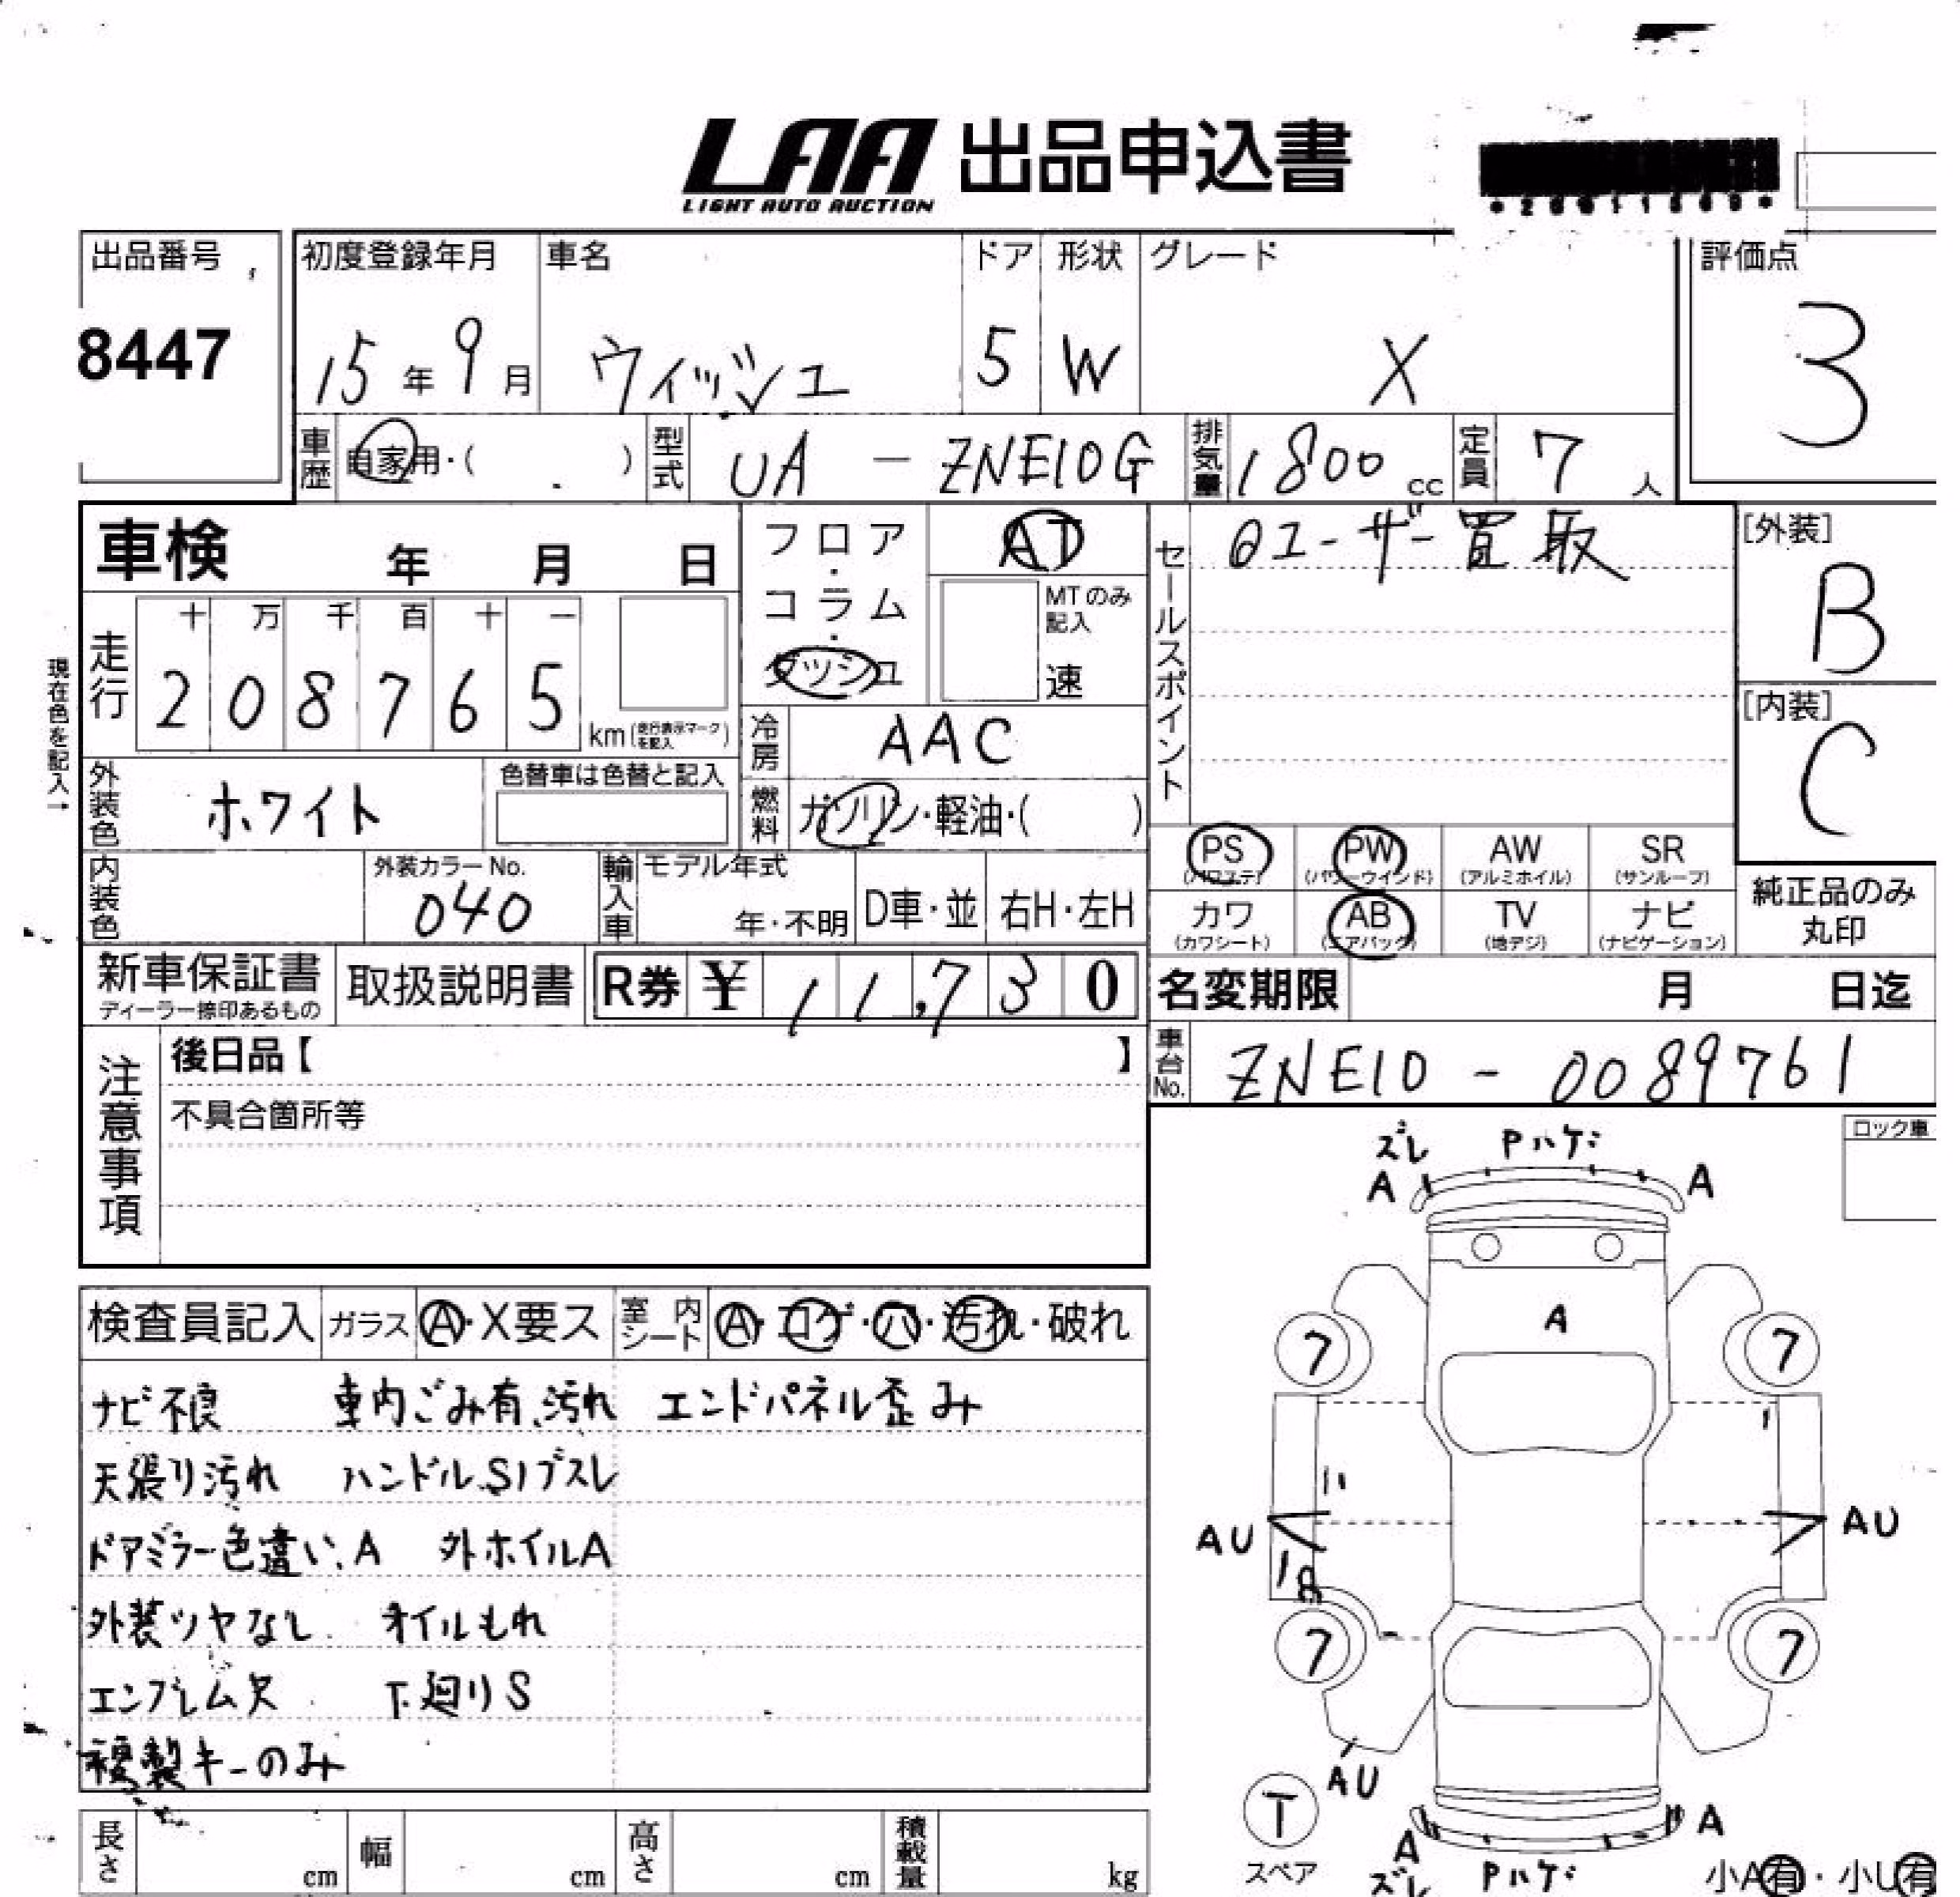 LAA 出品申込書
LIGHT AUTO AUCTION
出品番号
8447
初度登録年月
15年 9月
車名
ウィッシュ
ドア
5
形状
W
グレード
X
評価点
3
車歴 自家用・( )
型式 UA - ZNE10G
排気量 1800 cc
定員 7 人
車検 年 月 日
フロア・コラム・ダッシュ
AT
MTのみ記入
速
セールスポイント
@ユーザー買取
[外装]
B
[内装]
C
現在色を記入→
走行
十 万 千 百 十 一
2 0 8 7 6 5
km(走行表示マークを記入)
冷房 AAC
外装色 ホワイト
色替車は色替と記入
燃料 ガソリン・軽油・( )
内装色
外装カラーNo.
040
輸入車 モデル年式
年・不明
D車・並
右H・左H
PS (パワステ)
PW (パワーウインド)
AW (アルミホイル)
SR (サンルーフ)
カワ (カワシート)
AB (エアバック)
TV (地デジ)
ナビ (ナビゲーション)
純正品のみ
丸印
新車保証書
ディーラー捺印あるもの
取扱説明書
R券 ¥ 11,730
名変期限 月 日迄
車台No. ZNE10 - 0089761
注意事項
後日品【 】
不具合箇所等
ロック車
検査員記入 ガラス A・X要ス 室内シート A・コゲ・ハ・汚れ・破れ
ナビ不良 車内ごみ有、汚れ エンドパネル歪み
天張り汚れ ハンドル、Sノブスレ
ドアミラー色違い、A 外ホイルA
外装ツヤなし オイルもれ
エンブレム欠 下廻りS
複製キーのみ
ズレ Pハゲ
A A
A
7 7
AU AU
7 7
AU
T
スペア
A A
ズレ Pハゲ
小A有・小U有
長さ cm 幅 cm 高さ cm 積載量 kg